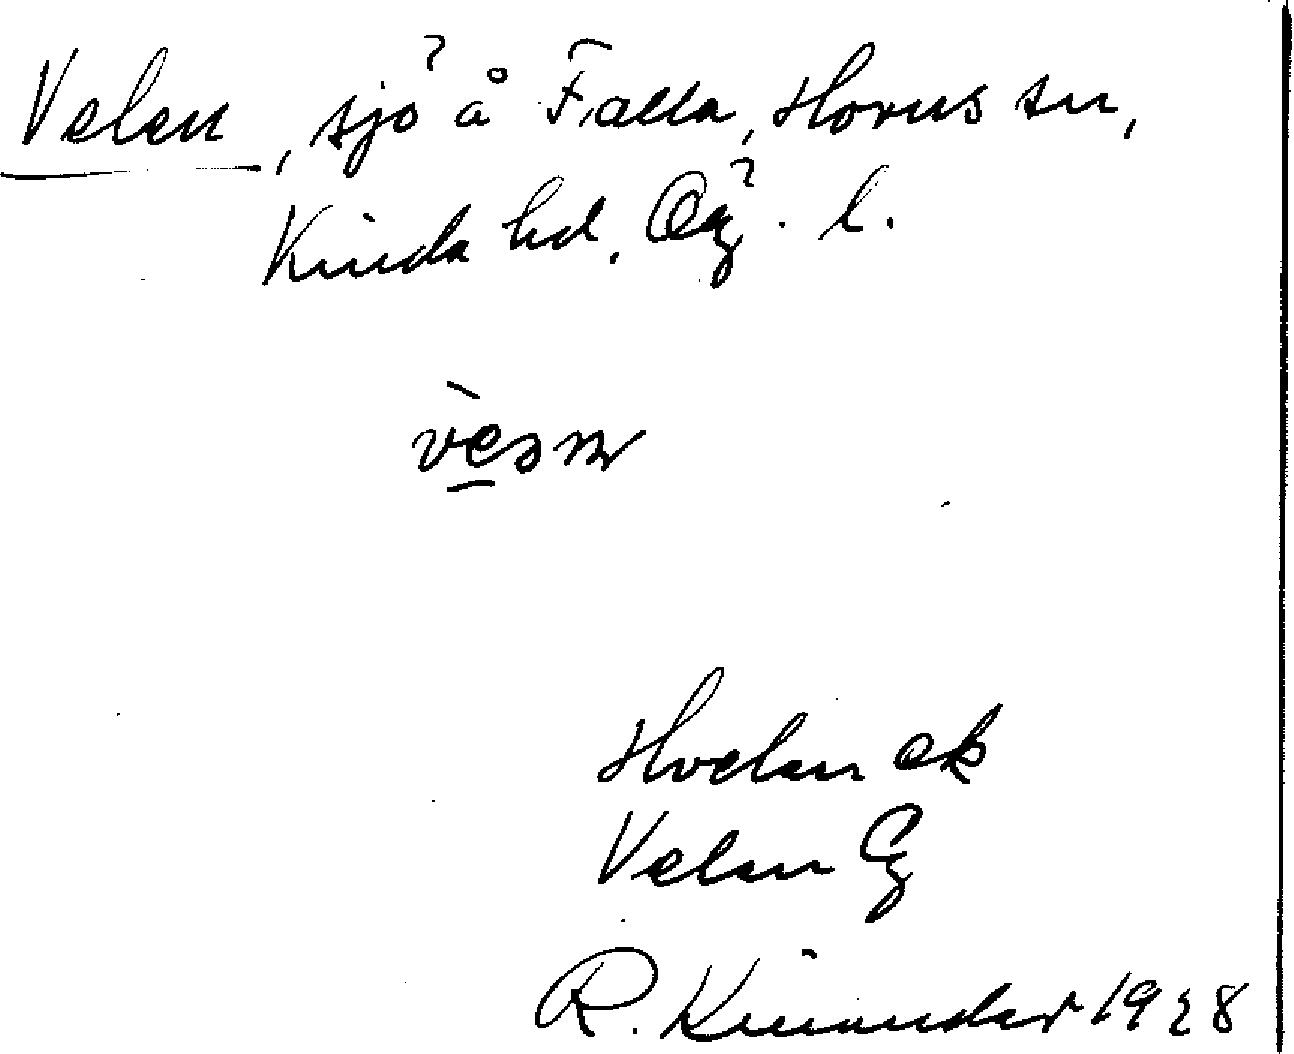 Velen, sjö å Falla, Horns sn,
Kinda hd, Ög. l.
Hvelen ek
Velen Eg
R. Kinander 1928